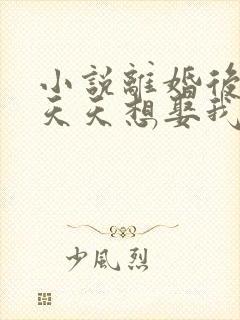 小説離婚後
天天想娶我
少風烈